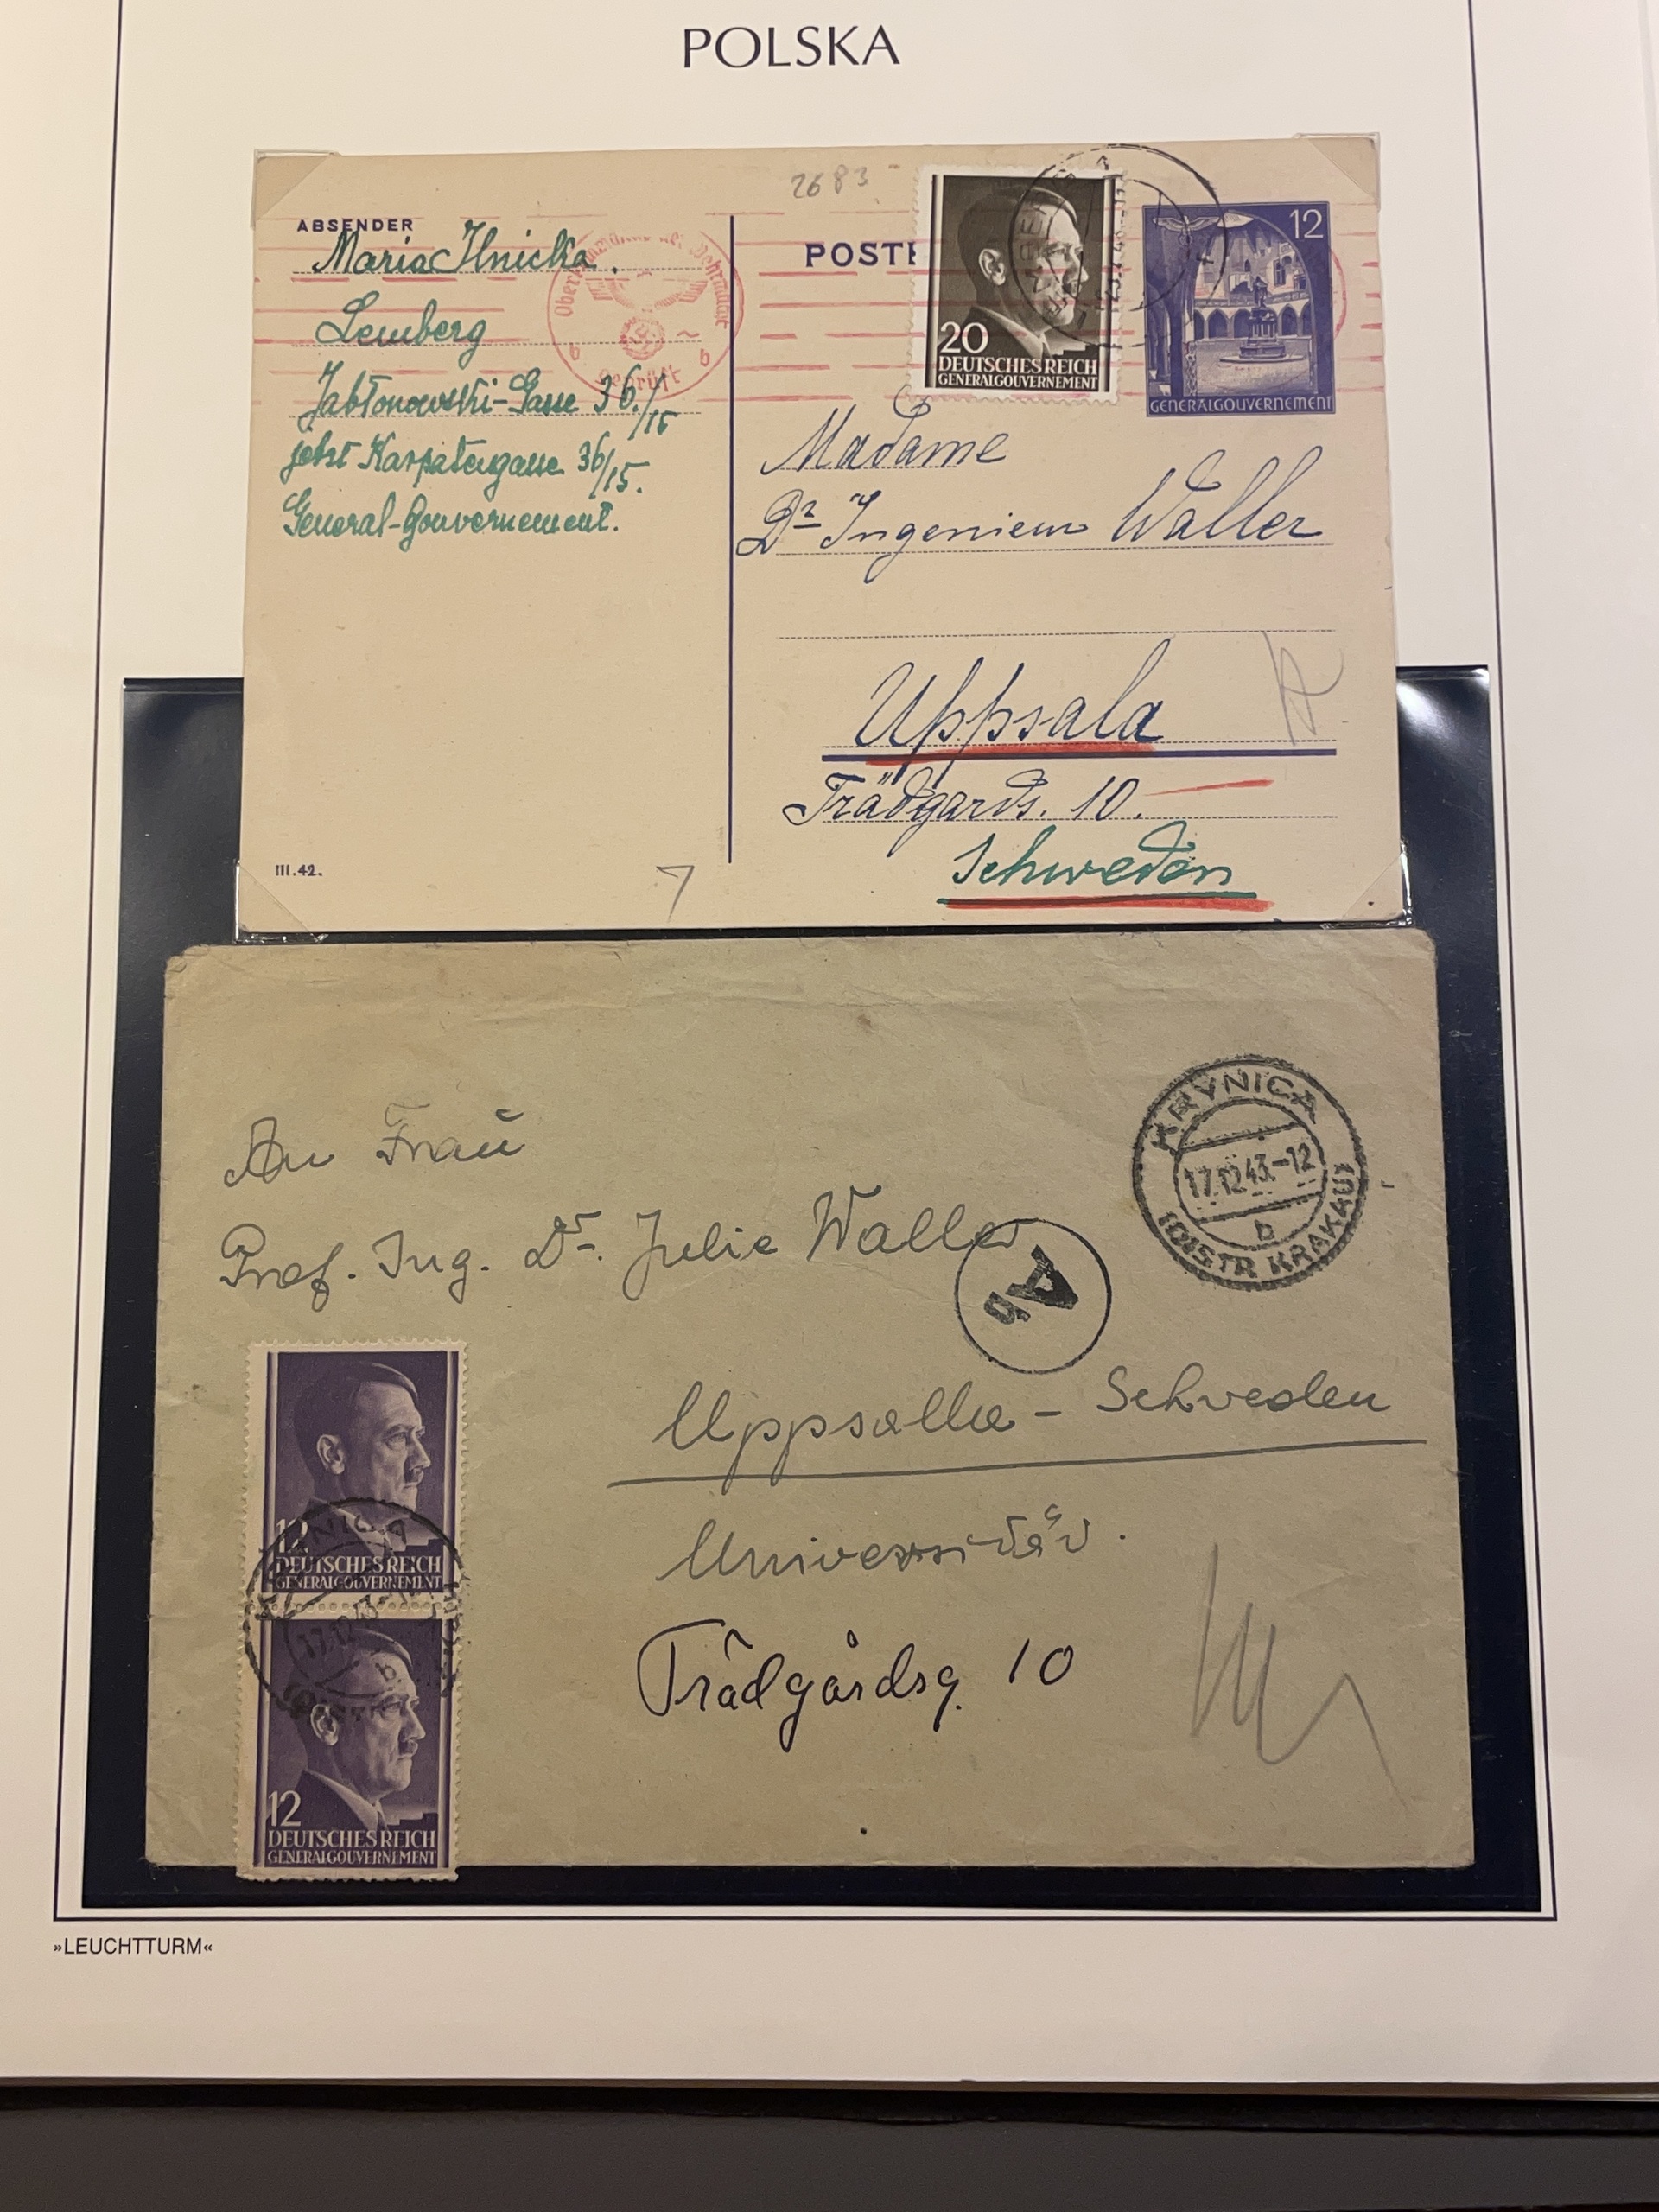 POLSKA
2683
ABSENDER
Maria Ilnicka.
Lemberg
Jabłonowski-Gasse 36./15
jetzt Karpatengasse 36/15.
General-Gouvernement.
III.42.
Oberkommando der Wehrmacht
b b
Geprüft
POSTK
20
DEUTSCHES REICH
GENERALGOUVERNEMENT
LEMBERG
12
GENERALGOUVERNEMENT
Madame
Dr Ingenieur Waller
Uppsala
Trädgards. 10.
Schweden
An Frau
Prof. Ing. Dr. Julie Waller
Uppsalla - Schweden
Universität.
Trädgårdsg. 10
KRYNICA
17.12.43.-12
b
(DISTR KRAKAU)
Ab
12
DEUTSCHES REICH
GENERALGOUVERNEMENT
KRYNICA
17.12.43
b
12
DEUTSCHES REICH
GENERALGOUVERNEMENT
»LEUCHTTURM«